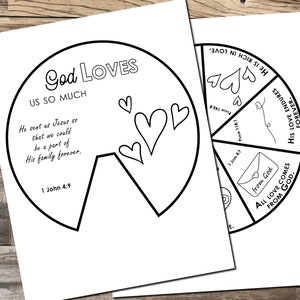 God LOVES
US SO MUCH
He sent us Jesus so
that we could
be a part of
His family forever.
1 John 4:9
HE IS RICH IN LOVE.
HIS LOVE ENDURES
FOREVER.
1 John 4:7
from God
ALL LOVE COMES
FROM GOD.